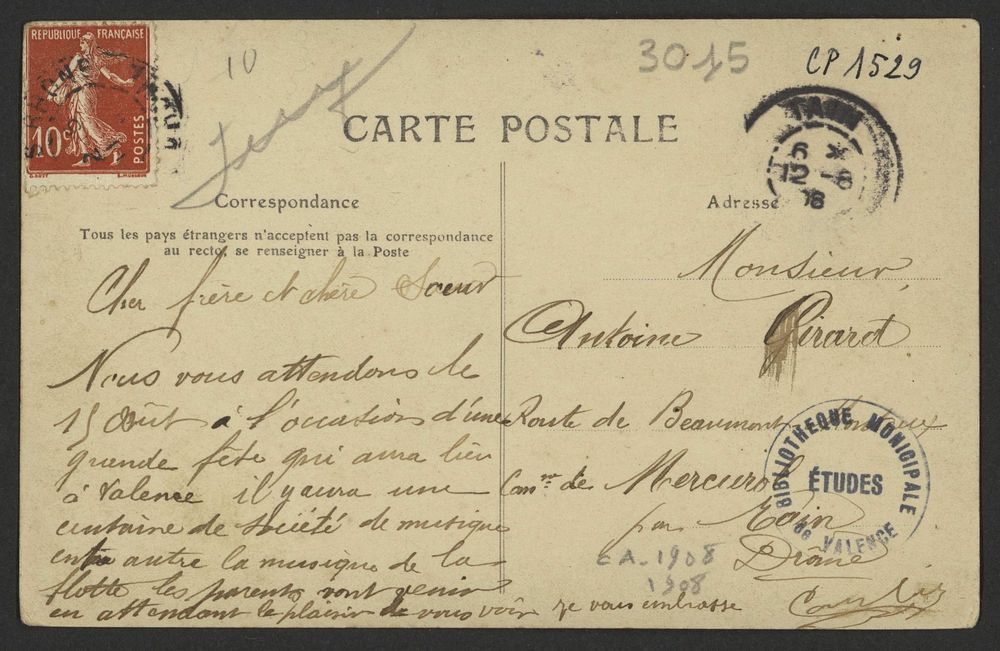 REPUBLIQUE FRANÇAISE
10c
POSTES
10
3015
CP 1529
CARTE POSTALE
Correspondance
Adresse
TAIN
6 *
12 -8
08
Tous les pays étrangers n'acceptent pas la correspondance
au recto, se renseigner à la Poste
Cher frère et chère Soeur
Nous vous attendons le
15 Août à l'occasion d'une
grande fête qui aura lieu
à Valence il y aura une
centaine de Société de musique
entre autre la musique de la
flotte les parents vont venir
en attendant le plaisir de vous voir je vous embrasse
Monsieur
Antoine Girard
Route de Beaumont
Con.ne de Mercurol
par Tain
Drôme
BIBLIOTHEQUE MUNICIPALE
ÉTUDES
de VALENCE
CA. 1908
1908